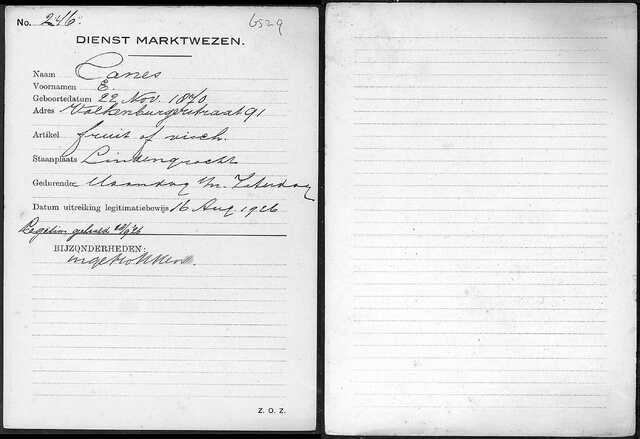 No. 246.
6529
DIENST MARKTWEZEN.
Naam Canes
Voornamen E.
Geboortedatum 22 Nov. 1870
Adres Valkenburgerstraat 91
Artikel fruit of visch.
Staanplaats Lindengracht
Gedurende Maandag t/m. Zaterdag
Datum uitreiking legitimatiebewijs 16 Aug 1926
BIJZONDERHEDEN:
ingetrokken
Z. O. Z.